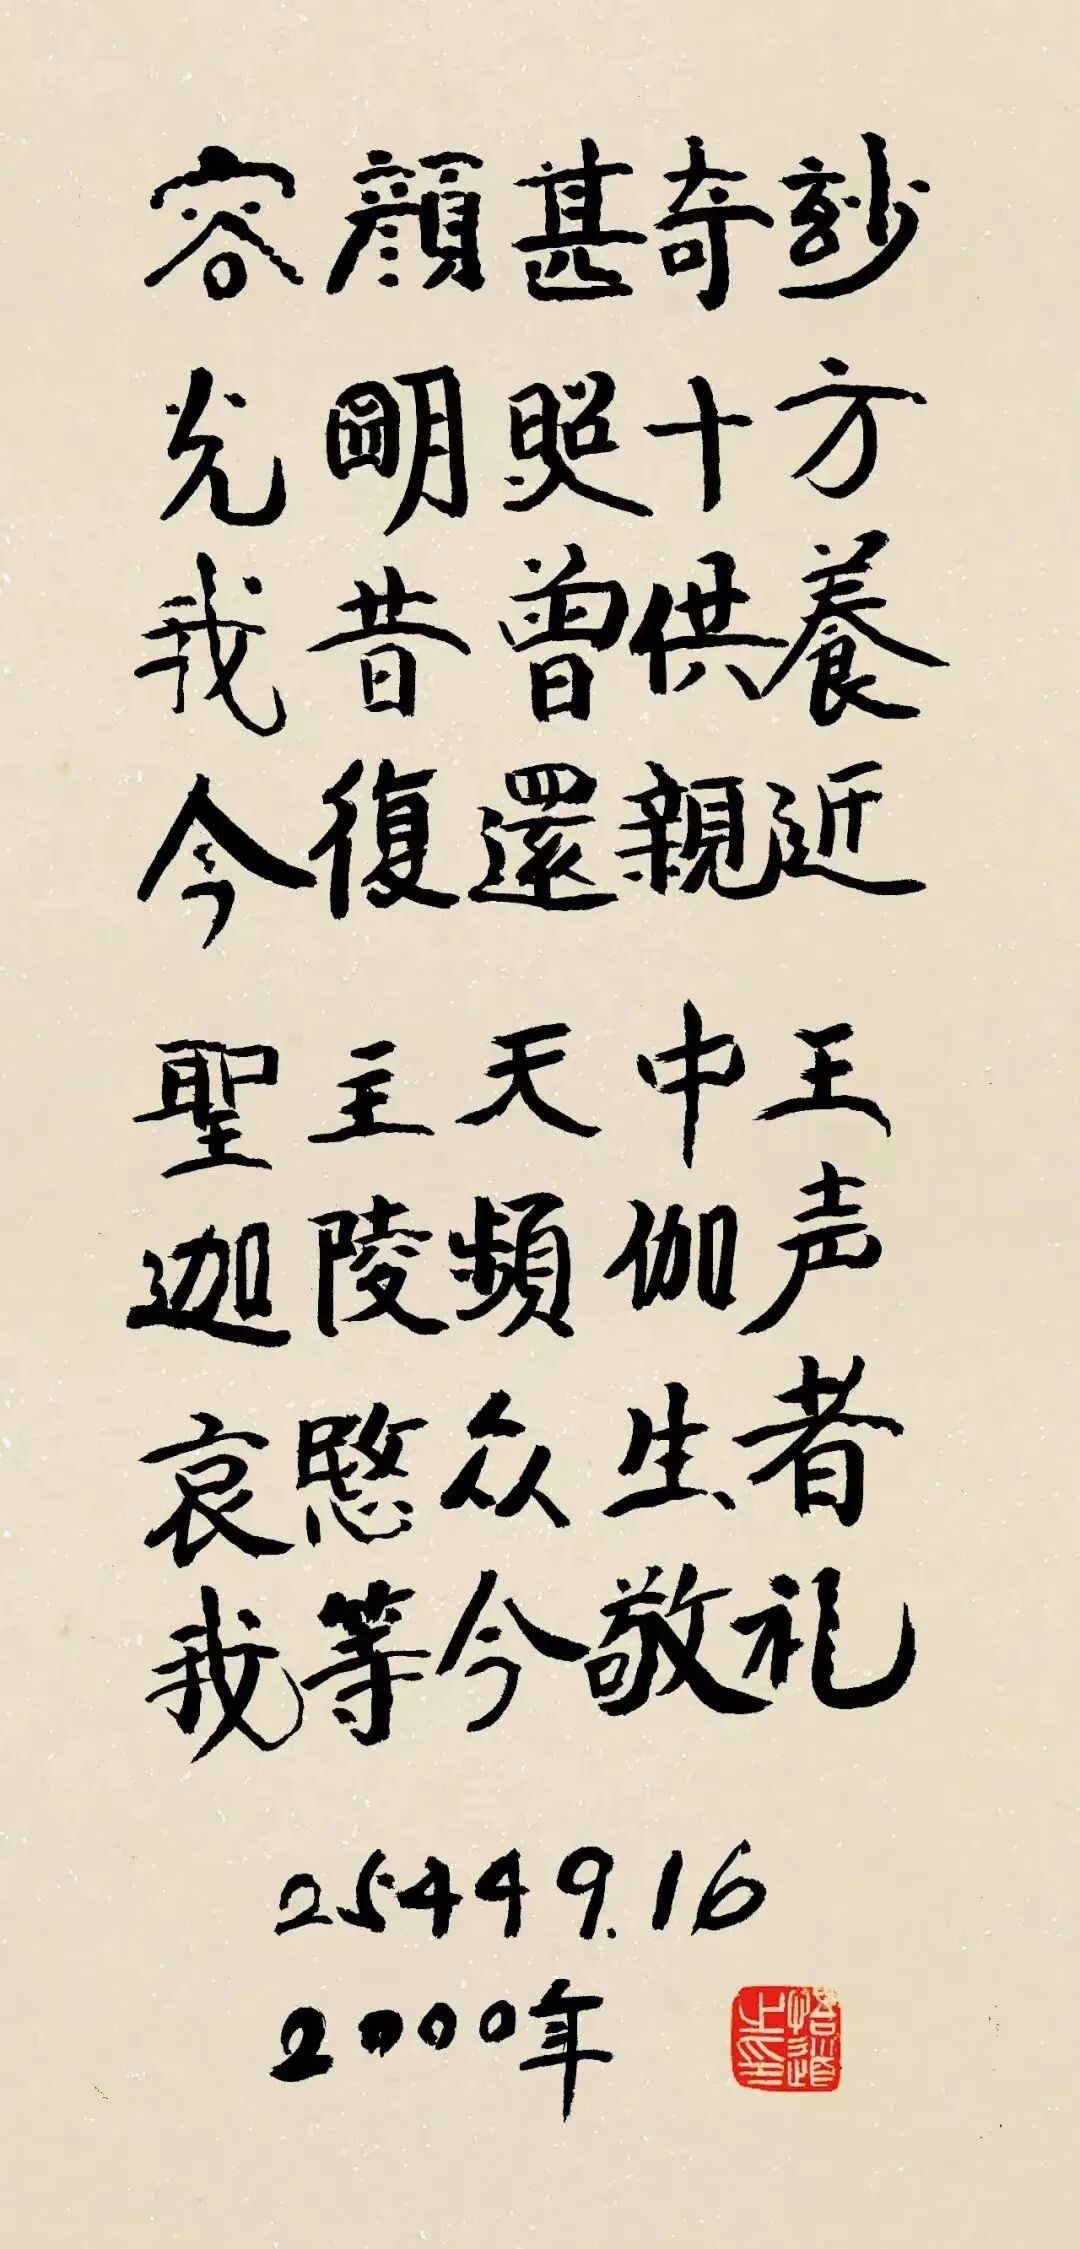 容顏甚奇玅
光朙照十方
我昔曾供養
今復還親近
聖主天中王
迦陵頻伽声
哀愍众生者
我等今敬礼
2544 9.16
2000年
悟道之印